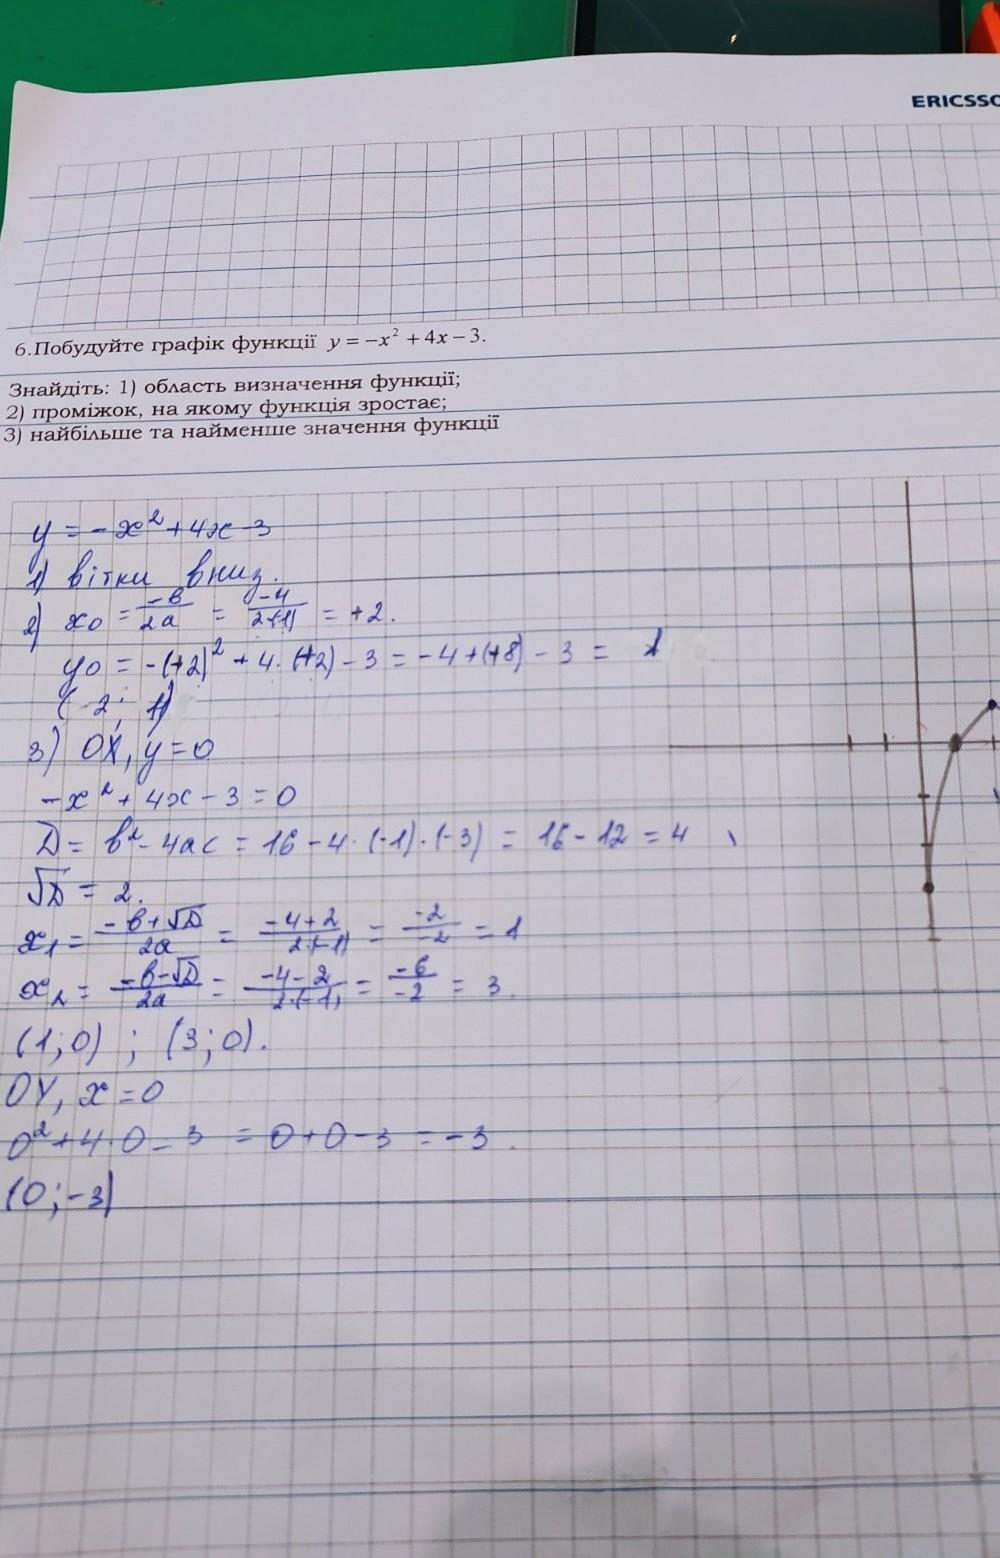 ERICSSO
6.Побудуйте графік функції y = −x² + 4x − 3.
Знайдіть: 1) область визначення функції;
2) проміжок, на якому функція зростає;
3) найбільше та найменше значення функції
y = -x² + 4x - 3
1) вітки вниз.
2) x₀ = -b/2a = -4/2·(-1) = +2.
y₀ = -(+2)² + 4·(+2) - 3 = -4 + (+8) - 3 = 1
(2; 1)
3) OX, y = 0
-x² + 4x - 3 = 0
D = b² - 4ac = 16 - 4·(-1)·(-3) = 16 - 12 = 4
√D = 2.
x₁ = -b+√D/2a = -4+2/2·(-1) = -2/-2 = 1
x₂ = -b-√D/2a = -4-2/2·(-1) = -6/-2 = 3.
(1; 0) ; (3; 0).
OY, x = 0
0² + 4·0 - 3 = 0 + 0 - 3 = -3.
(0; -3)